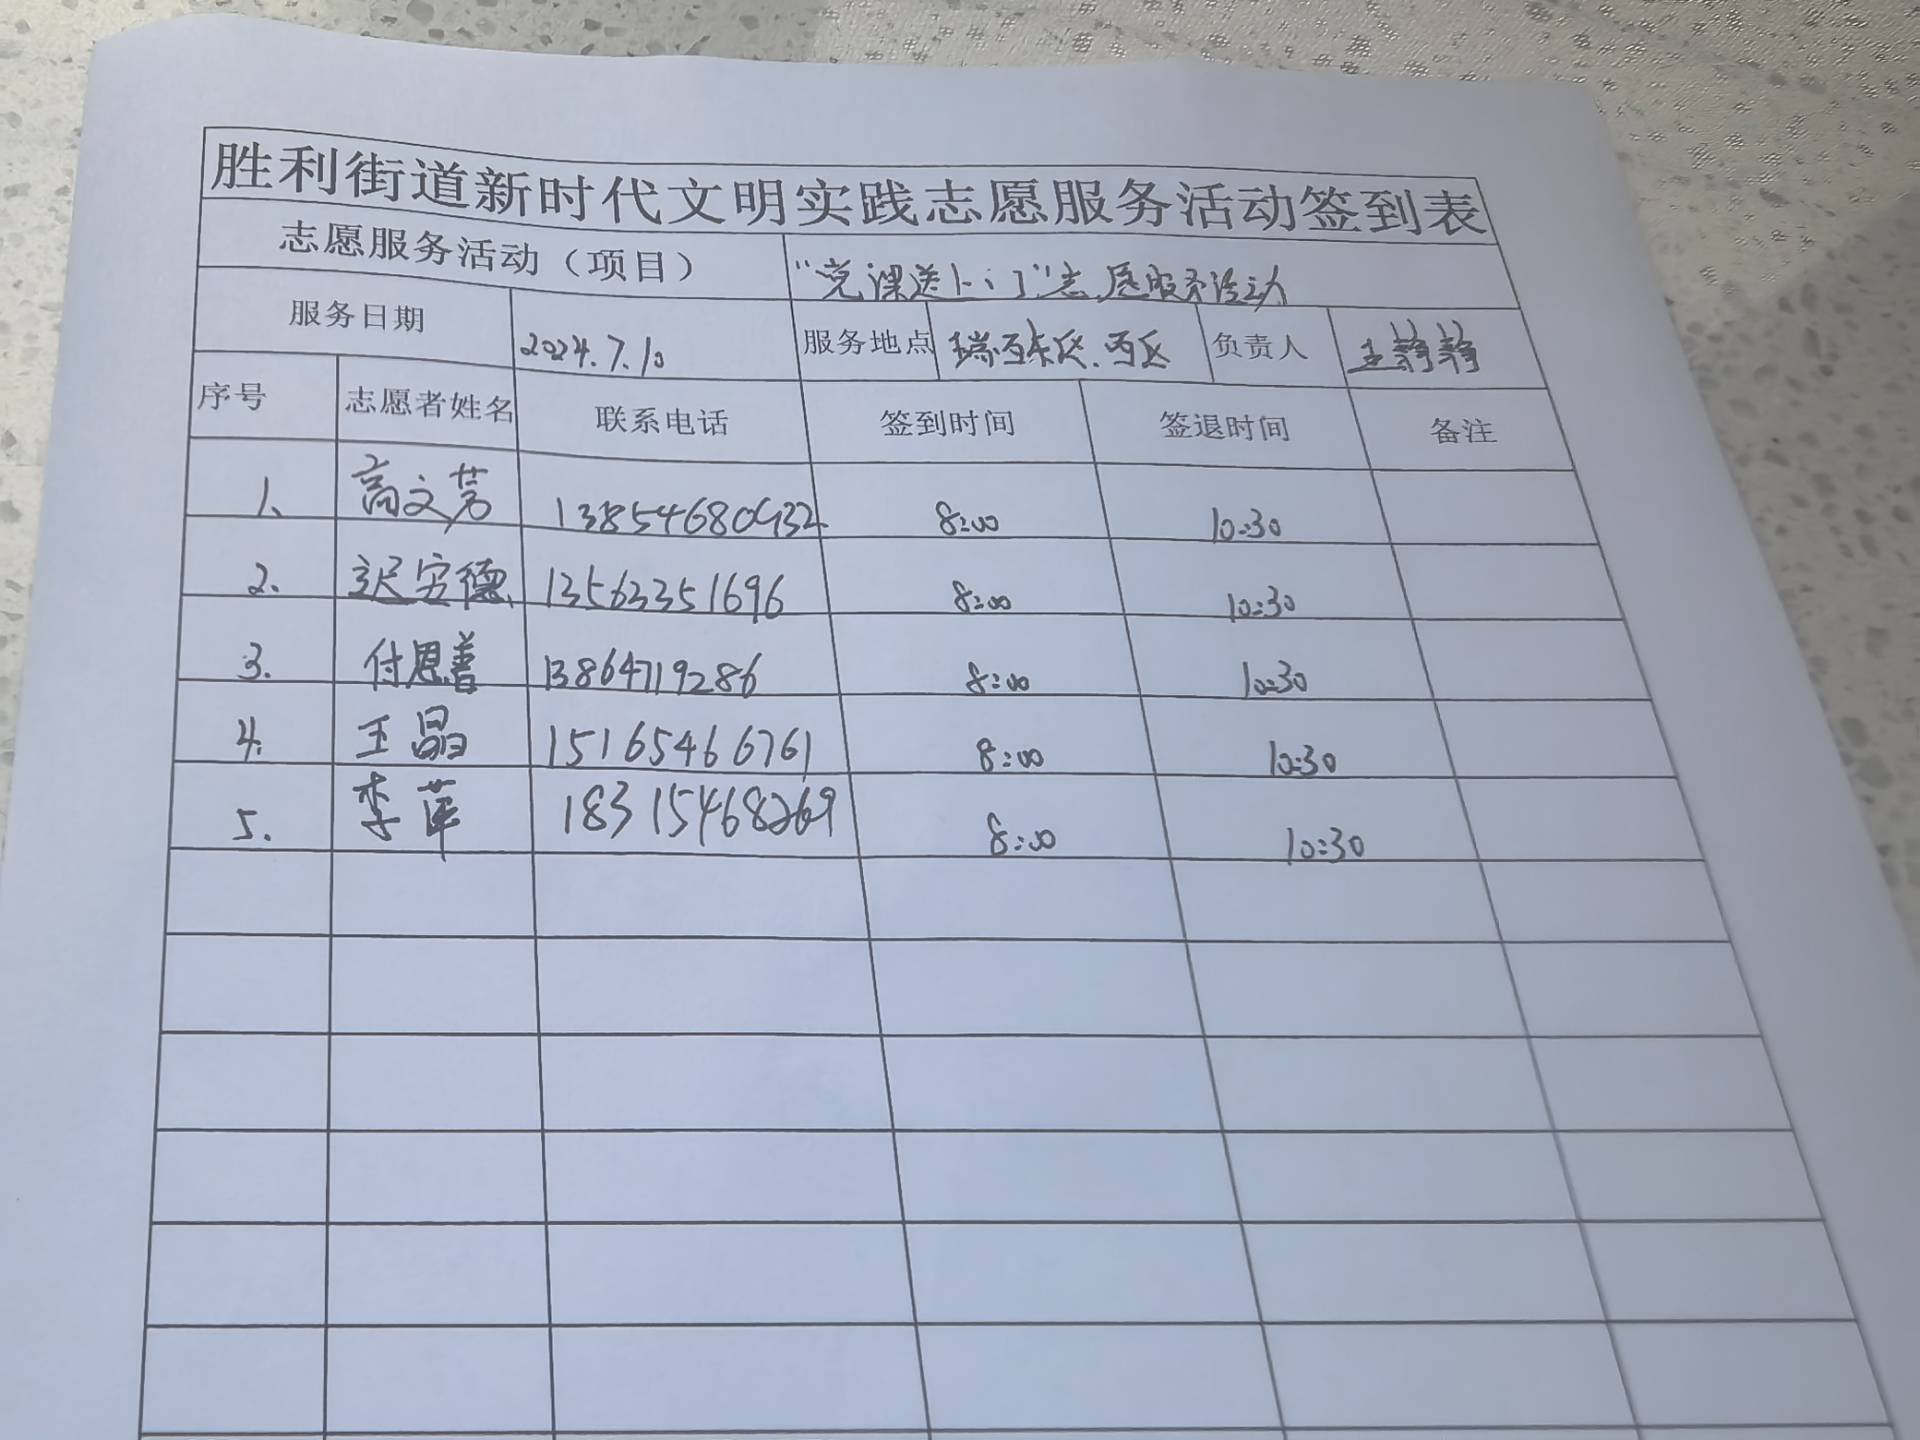 胜利街道新时代文明实践志愿服务活动签到表
志愿服务活动（项目） “党课送上门”志愿服务活动
服务日期 2024.7.10 服务地点 瑞西东区.西区 负责人 王静静
序号 志愿者姓名 联系电话 签到时间 签退时间 备注
1. 高文芳 13854680932 8:00 10:30
2. 迟安德 13563351696 8:00 10:30
3. 付恩善 13864719286 8:00 10:30
4. 王晶 15165466761 8:00 10:30
5. 李萍 18315468269 8:00 10:30